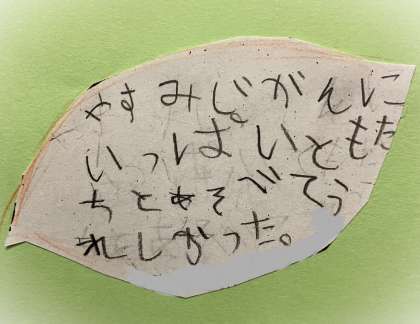 やすみじがんに
いっぱいともだ
ちとあそびてう
れしかった。